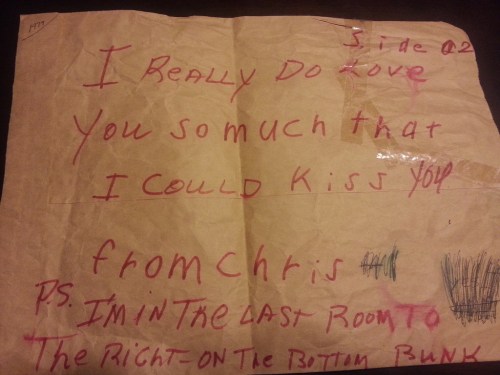 Side 02
I REALLY DO LOVE
You so much that
I COULD Kiss you
from Chris
P.S. I'M IN THE LAST ROOM TO
The RiGHT-ON The BOTTOM BUNK